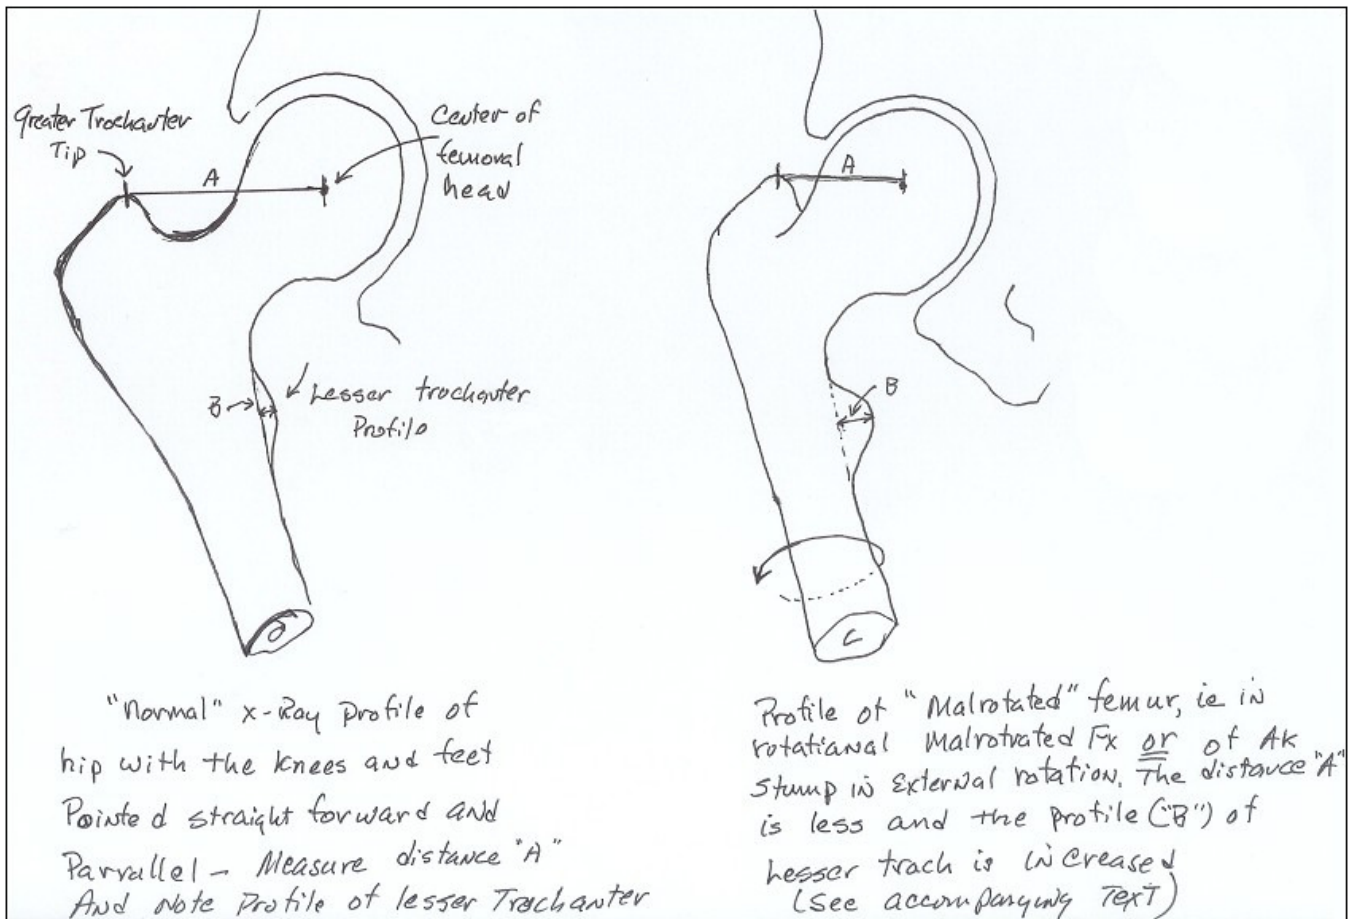 Greater Trochanter
Tip
A
Center of
femoral
head
B
Lesser trochanter
Profile
"Normal" x-Ray profile of
hip with the knees and feet
Pointed straight forward and
Parrallel - Measure distance "A"
And note Profile of lesser Trochanter
A
B
C
Profile of "Malrotated" femur, ie in
rotational Malrotrated Fx or of AK
Stump in External rotation. The distance "A"
is less and the profile ("B") of
Lesser troch is increased
(see accompanying Text)